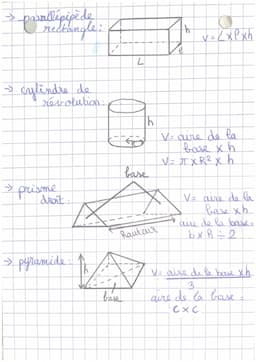 → parallélipipède
rectangle:
h
l
L
V = L x l x h
→ cylindre de
révolution:
h
V = aire de la
base x h
V = π x R² x h
→ prisme
droit:
base
Hauteur
V = aire de la
base x h
aire de la base:
b x h ÷ 2
→ pyramide:
h
base
V = aire de la base x h
3
aire de la base =
c x c